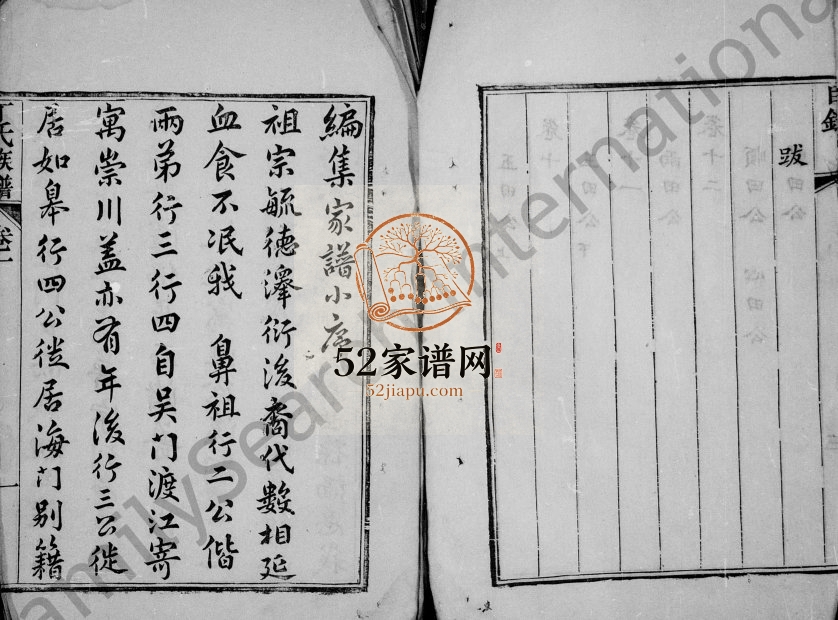 目錄
跋
編集家譜小序
祖宗毓德澤衍後裔代數相延
血食不泯我 鼻祖行二公偕
兩弟行三行四自吴门渡江寄
寓崇川蓋亦有年後行三公徙
居如皋行四公徙居海门别籍
丁氏族譜 卷一
52家谱网
52jiapu.com
FamilySearch International